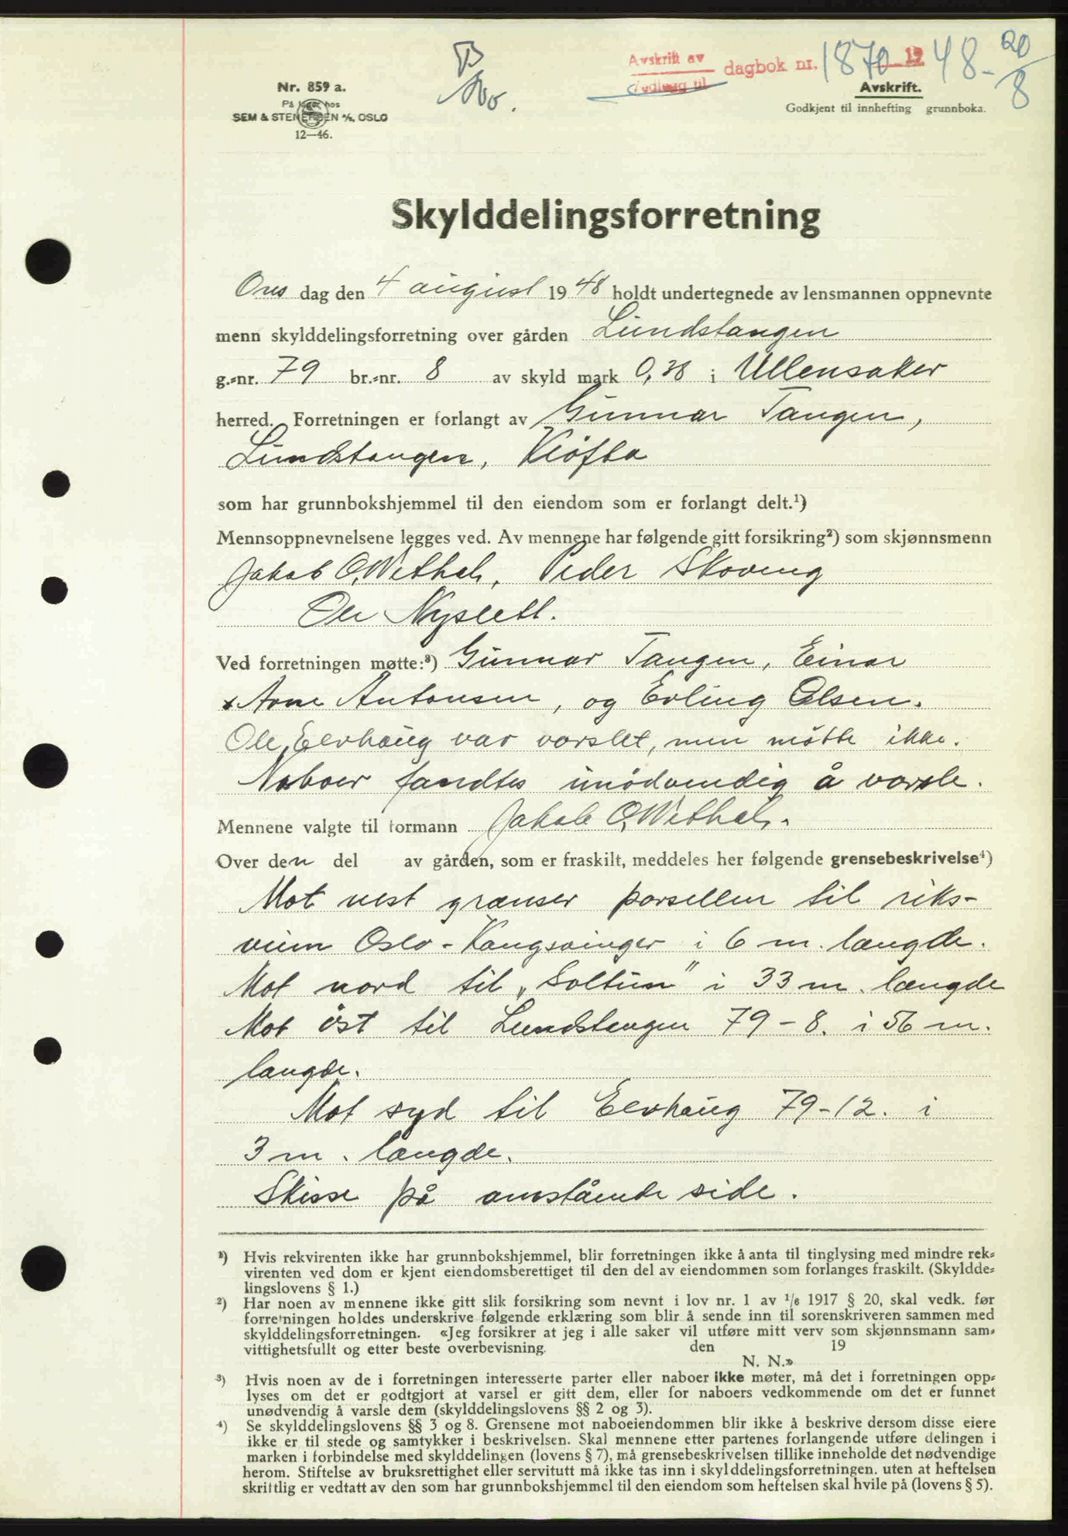 Avskrift av dagbok nr. 1870 19 48 - 20/8
Nr. 859 a.
SEM & STENERSEN A/S, OSLO
12—46.
Avskrift.
Godkjent til innhefting grunnboka.
Skylddelingsforretning
Ons dag den 4 august 19 48 holdt undertegnede av lensmannen oppnevnte
menn skylddelingsforretning over gården Lundstangen
g.-nr. 79 br.-nr. 8 av skyld mark 0,38 i Ullensaker
herred. Forretningen er forlangt av Gunnar Tangen,
Lundstangen, Kløfta
som har grunnbokshjemmel til den eiendom som er forlangt delt.¹)
Mennsoppnevnelsene legges ved. Av mennene har følgende gitt forsikring²) som skjønnsmenn
Jakob O. Wethal, Peder Skoving
Ole Nyslett.
Ved forretningen møtte:³) Gunnar Tangen, Einar
Arne Antonsen, og Erling Olsen.
Ole Elvhaug var varslet, men møtte ikke.
Naboer fandtes unödvendig å varsle.
Mennene valgte til formann Jakob O. Wethal.
Over den del av gården, som er fraskilt, meddeles her følgende grensebeskrivelse⁴)
Mot vest grænser parsellen til riks-
veien Oslo - Kongsvinger i 6 m. længde.
Mot nord til „Soltun" i 33 m. længde
Mot öst til Lundstangen 79 - 8. i 56 m.
længde.
Mot syd til Elvhaug 79 - 12. i
3 m. længde.
Skisse på omstående side.
¹) Hvis rekvirenten ikke har grunnbokshjemmel, blir forretningen ikke å anta til tinglysing med mindre rek-
virenten ved dom er kjent eiendomsberettiget til den del av eiendommen som forlanges fraskilt. (Skyldde-
lingslovens § 1.)
²) Har noen av mennene ikke gitt slik forsikring som nevnt i lov nr. 1 av 1/6 1917 § 20, skal vedk. før
forretningen holdes underskrive følgende erklæring som blir å sende inn til sorenskriveren sammen med
skylddelingsforretningen. «Jeg forsikrer at jeg i alle saker vil utføre mitt verv som skjønnsmann sam-
vittighetsfullt og etter beste overbevisning. den 19
N. N.»
³) Hvis noen av de i forretningen interesserte parter eller naboer ikke møter, må det i forretningen opp-
lyses om det er godtgjort at varsel er gitt dem, eller for naboers vedkommende om det er funnet
unødvendig å varsle dem (skylddelingslovens §§ 2 og 3).
⁴) Se skylddelingslovens §§ 3 og 8. Grensene mot naboeiendommen blir ikke å beskrive dersom disse eiere
ikke er til stede og samtykker i beskrivelsen. Skal mennene etter partenes forlangende utføre delingen i
marken i forbindelse med skylddelingen (lovens § 7), må grensebeskrivelsen tillike inneholde det nødvendige
herom. Stiftelse av bruksrettighet eller servitutt må ikke tas inn i skylddelingsforretningen. uten at heftelsen
skriftlig er vedtatt av den som har grunnbokshjemmel til den eiendom som heftelsen skal hvile på (lovens § 5).